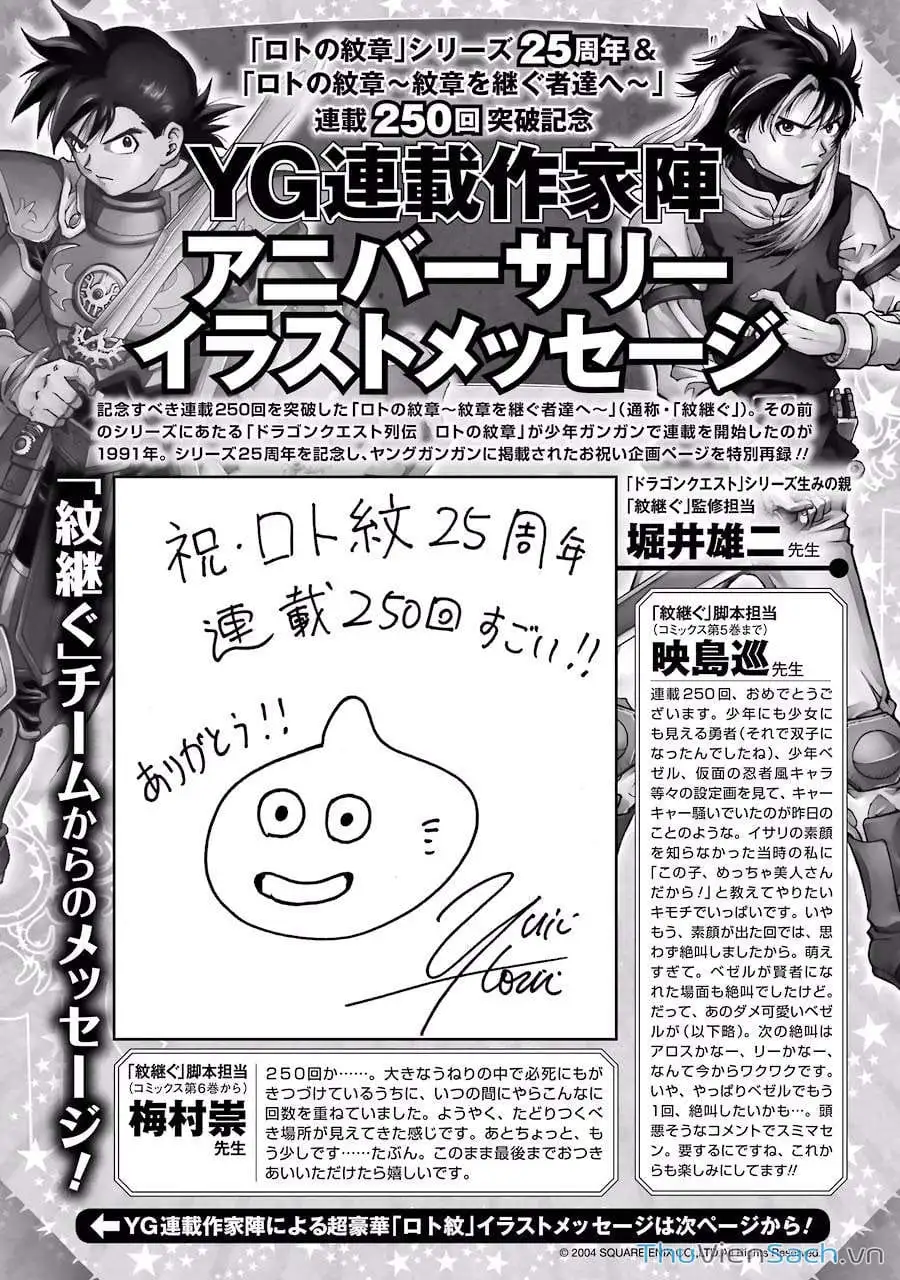 「ロトの紋章」シリーズ25周年&
「ロトの紋章～紋章を継ぐ者達へ～」
連載250回突破記念
YG連載作家陣
アニバーサリー
イラストメッセージ
記念すべき連載250回を突破した「ロトの紋章～紋章を継ぐ者達へ～」(通称・「紋継ぐ」)。その前
のシリーズにあたる「ドラゴンクエスト列伝　ロトの紋章」が少年ガンガンで連載を開始したのが
1991年。シリーズ25周年を記念し、ヤングガンガンに掲載されたお祝い企画ページを特別再録!!
「紋継ぐ」チームからのメッセージ!
「ドラゴンクエスト」シリーズ生みの親
「紋継ぐ」監修担当
堀井雄二先生
祝・ロト紋25周年
連載250回すごい!!
ありがとう!!
Yuji
Horii
「紋継ぐ」脚本担当
(コミックス第5巻まで)
映島巡先生
連載250回、おめでとうご
ざいます。少年にも少女に
も見える勇者(それで双子に
なったんでしたね)、少年ベ
ゼル、仮面の忍者風キャラ
等々の設定画を見て、キャー
キャー騒いでいたのが昨日の
ことのような。イサリの素顔
を知らなかった当時の私に
「この子、めっちゃ美人さん
だから!」と教えてやりたい
キモチでいっぱいです。いや
もう、素顔が出た回では、思
わず絶叫しましたから。萌え
すぎて。ベゼルが賢者になれ
れた場面も絶叫でしたけど。
だって、あのダメ可愛いベゼ
ルが(以下略)。次の絶叫は
アロスかなー、リーかなー、
なんて今からワクワクです。
いや、やっぱりベゼルでもう
1回、絶叫したいかも…。頭
悪そうなコメントでスミマセ
ン。要するにですね、これか
らも楽しみにしてます!!
「紋継ぐ」脚本担当
(コミックス第6巻から)
梅村崇
先生
250回か……。大きなうねりの中で必死にもが
きつづけているうちに、いつの間にやらこんなに
回数を重ねていました。ようやく、たどりつくべ
き場所が見えてきた感じです。あとちょっと、も
う少しです……たぶん。このまま最後までおつき
あいいただけたら嬉しいです。
←YG連載作家陣による超豪華「ロト紋」イラストメッセージは次ページから!
© 2004 SQUARE ENIX CO., LTD. All Rights Reserved.
ThuVienSach.vn